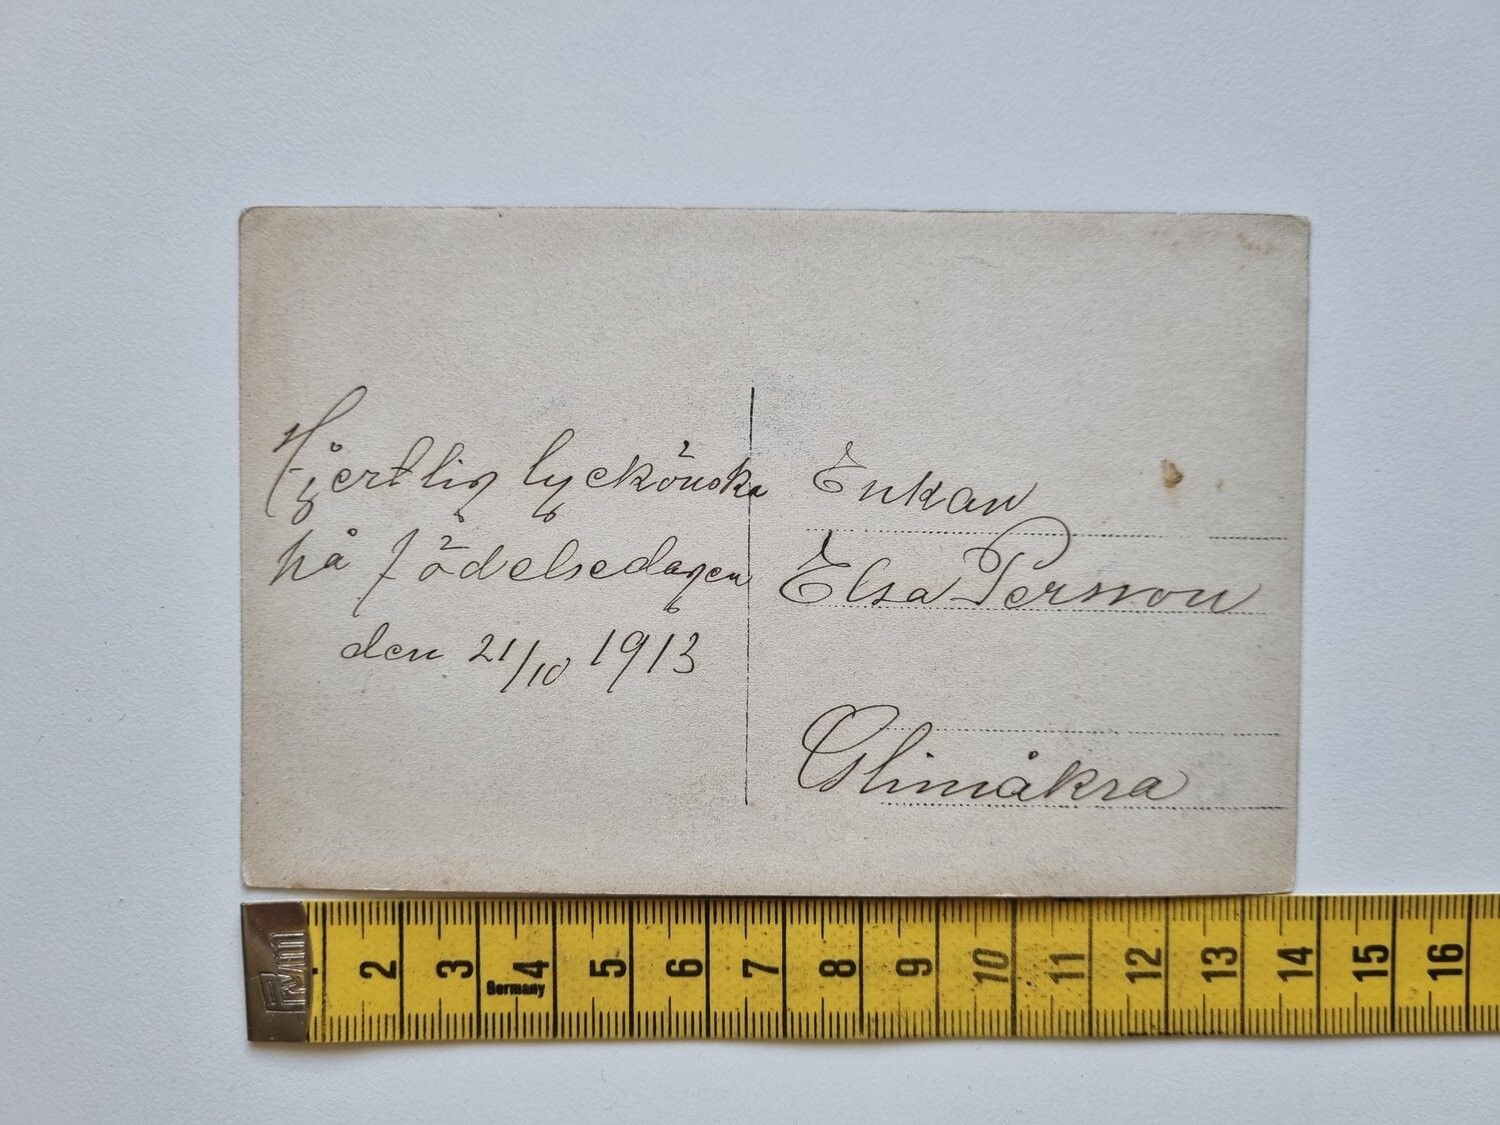 Hjertlig lyckönska
på födelsedagen
den 21/10 1913
Enkan
Elsa Persson
Glimåkra
PYM
2 3 4 5 6 7 8 9 10 11 12 13 14 15 16
Germany